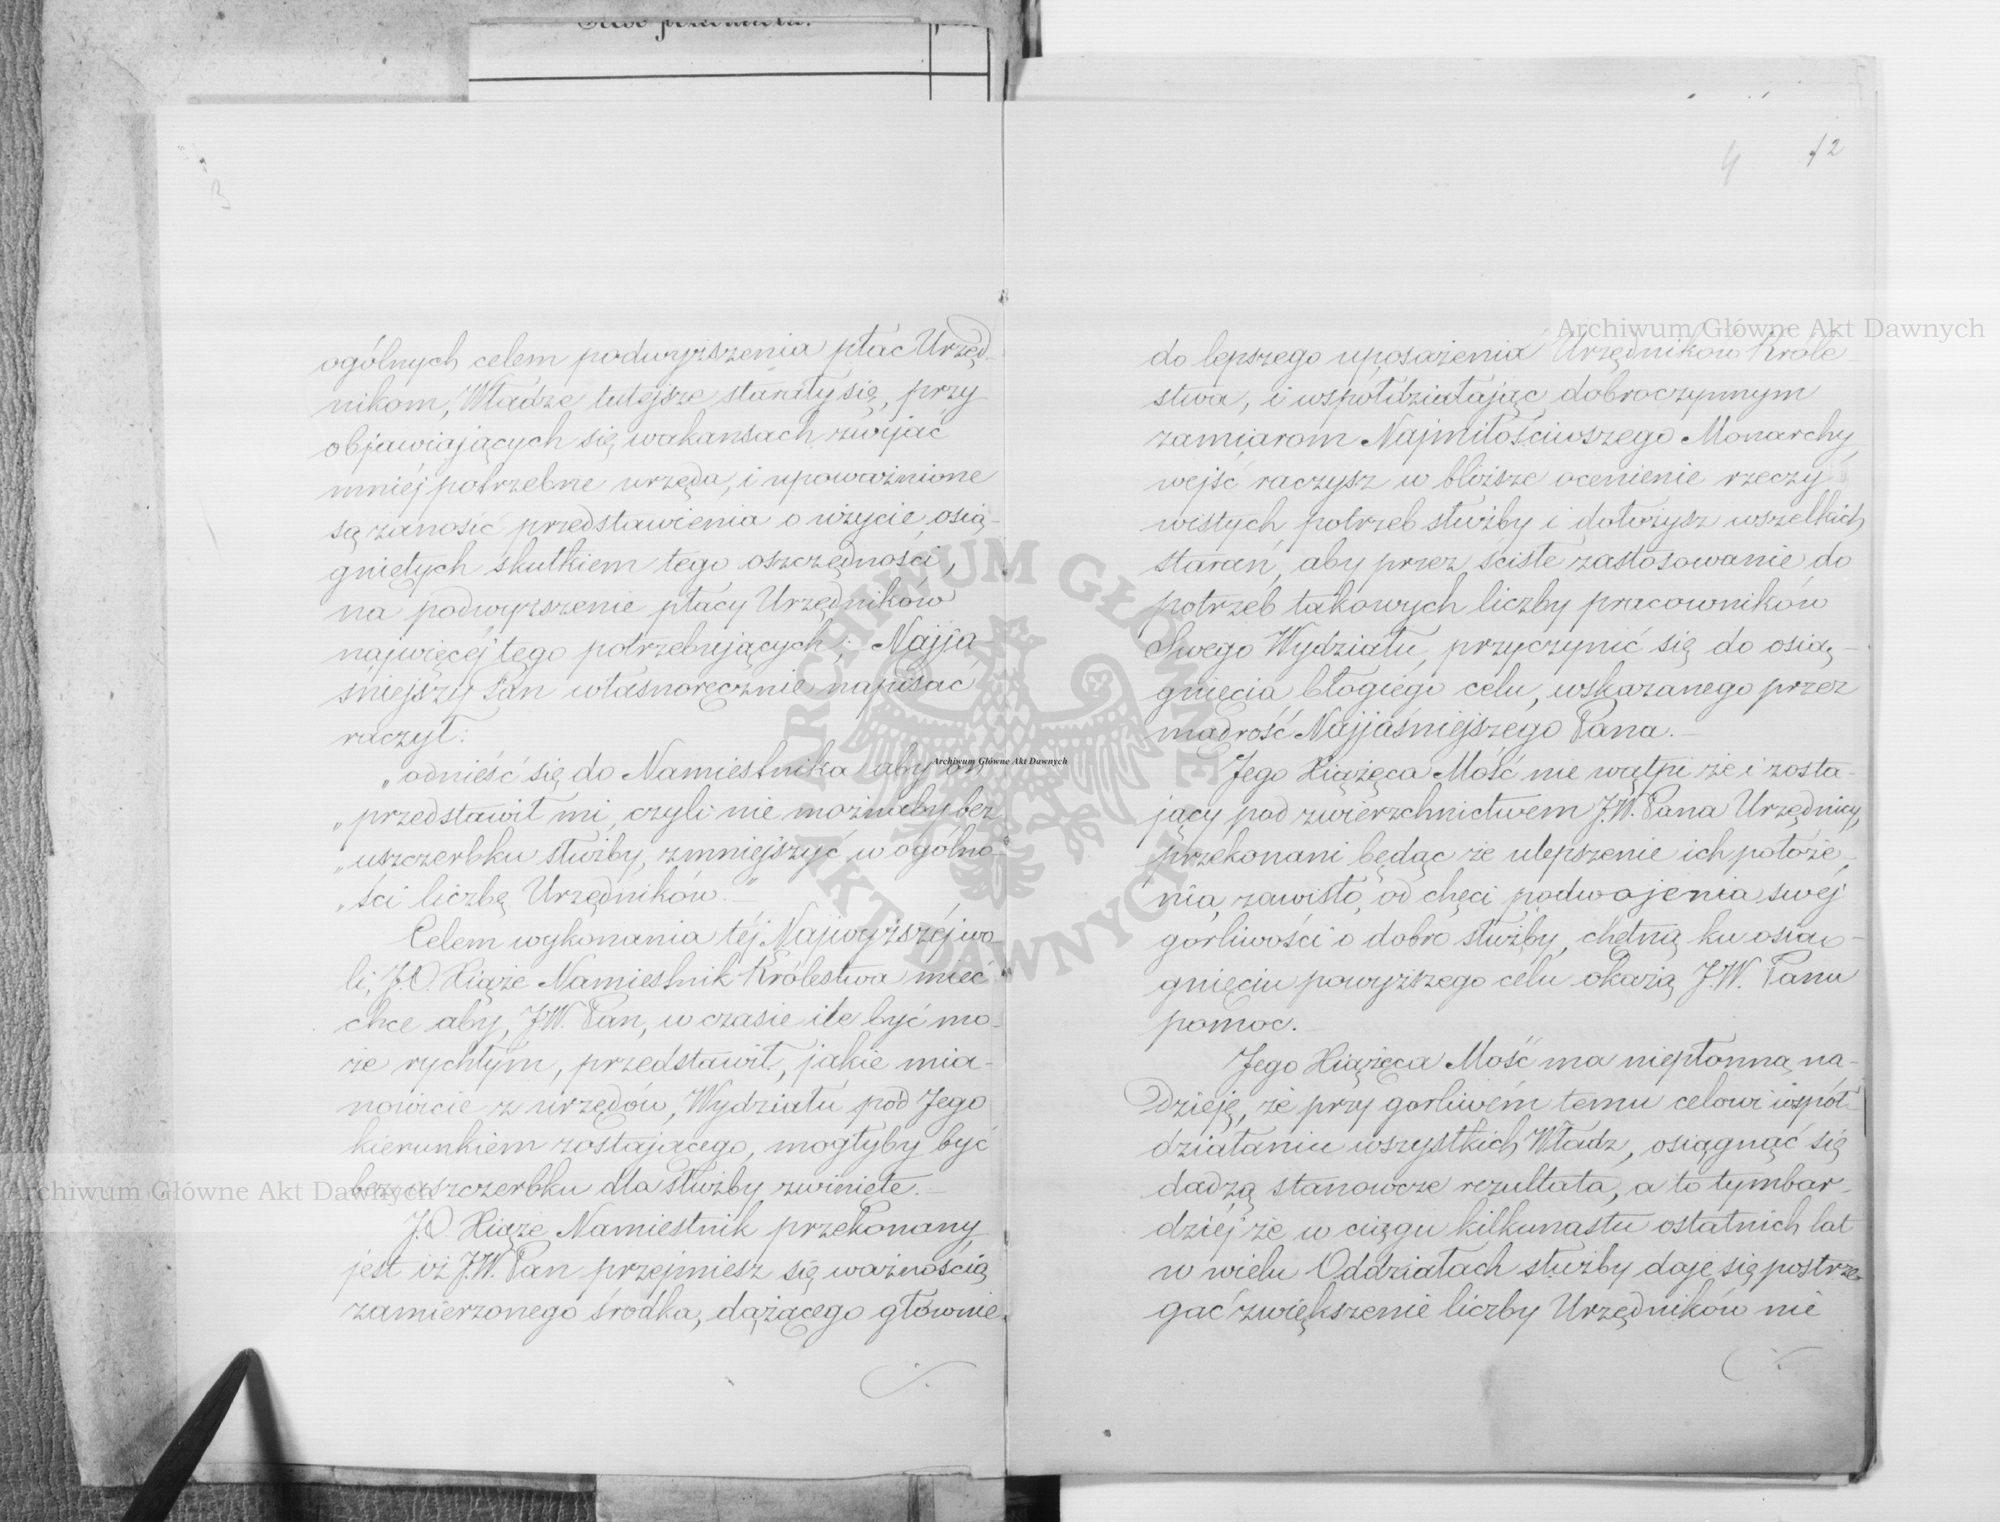 3
ogólnych celem podwyższenia płac Urzęd-
nikom, Władze tutejsze starały się, przy
objawiających się wakansach zwijać
mniéj potrzebne urzęda, i upoważnione
są zanosić przedstawienia o użycie osią-
gniętych skutkiem tego oszczędności,
na podwyższenie płacy Urzędników
najwięcéj tego potrzebujących; Najja-
śniejszy Pan własnoręcznie napisać
raczył:
„odnieść się do Namiestnika aby on
„przedstawił mi, czyli nie możnaby bez
„uszczerbku służby, zmniejszyć w ogólno-
„ści liczbę Urzędników.”—
Celem wykonania téj Najwyższéj wo-
li, J.O. Xiąże Namiestnik Królestwa mieć
chce aby, J.W. Pan, w czasie ile być mo-
że rychłym, przedstawił, jakie mia-
nowicie z urzędów, Wydziału pod Jego
kierunkiem zostającego, mogłyby być
bez uszczerbku dla służby zwinięte.—
J.O. Xiąże Namiestnik przekonany
jest iż J.W. Pan przejmiesz się ważnością
zamierzonego środka, dążącego głównie
4 12
do lepszego uposażenia Urzędników Króle-
stwa, i współdziałając dobroczynnym
zamiarom Najmiłościwszego Monarchy,
wejść raczysz w bliższe ocenienie rzeczy-
wistych potrzeb służby i dołożysz wszelkich
starań, aby przez ścisłe zastosowanie do
potrzeb takowych liczby pracowników
Swego Wydziału, przyczynić się do osią-
gnięcia błogiego celu, wskazanego przez
mądrość Najjaśniejszego Pana.—
Jego Xiążęca Mość nie wątpi że i zosta-
jący pod zwierzchnictwem J.W. Pana Urzędnicy,
przekonani będąc że ulepszenie ich położe-
nia, zawisło, od chęci podwojenia swéj
gorliwości o dobro służby, chętną ku osią-
gnięciu powyższego celu okażą J.W. Panu
pomoc.
Jego Xiążęca Mość ma niepłonną na-
dzieję, że przy gorliwém temu celowi współ-
działaniu wszystkich Władz, osiągnąć się
dadzą stanowcze rezultata, a to tymbar-
dziéj że w ciągu kilkunastu ostatnich lat
w wielu Oddziałach służby daje się postrze-
gać zwiększenie liczby Urzędników nie
Archiwum Główne Akt Dawnych
Archiwum Główne Akt Dawnych
Archiwum Główne Akt Dawnych
ARCHIWUM GŁÓWNE
AKT DAWNYCH